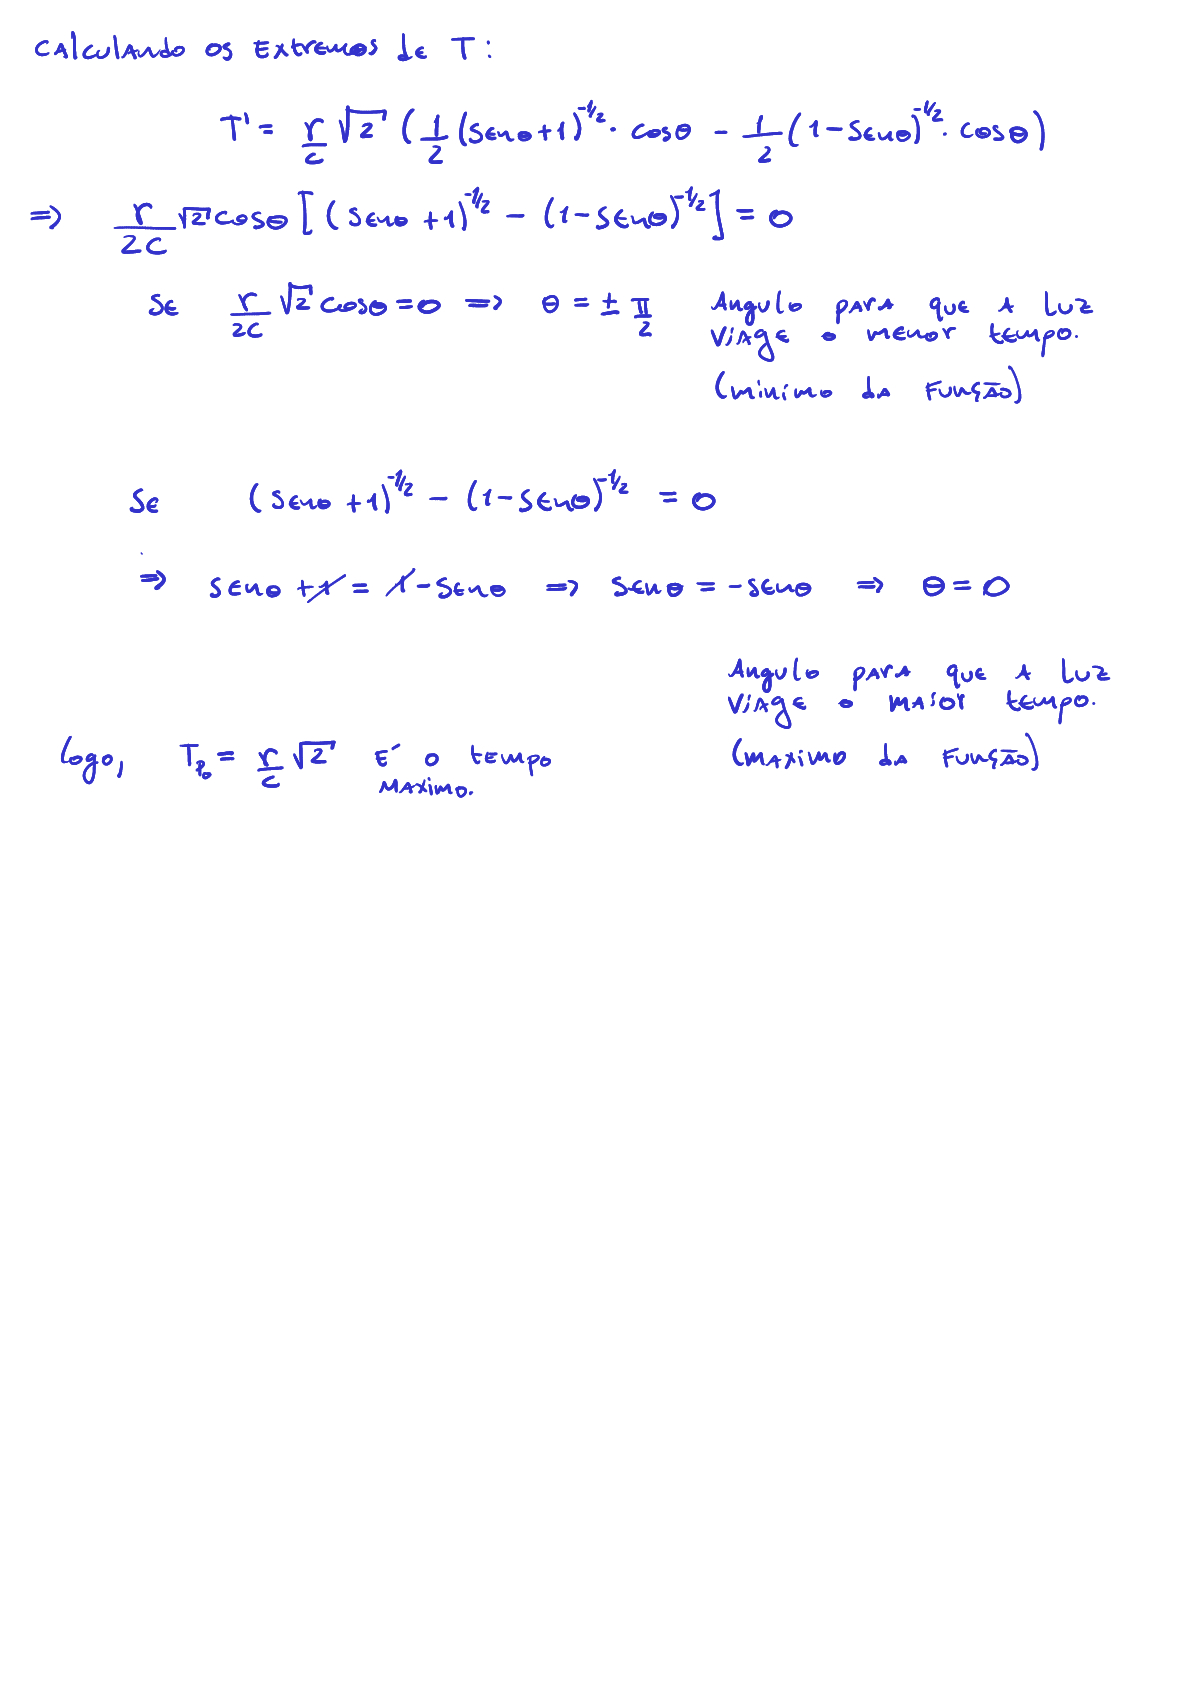 Calculando os extremos de T:
T' = r/c √2 (1/2 (senθ+1)^-1/2 · cosθ - 1/2 (1-senθ)^-1/2 · cosθ)
=> r/2c √2 cosθ [(senθ +1)^-1/2 - (1-senθ)^-1/2] = 0
Se r/2c √2 cosθ = 0 => θ = ± π/2
Angulo para que a luz
viage o menor tempo.
(minimo da função)
Se (senθ +1)^-1/2 - (1-senθ)^-1/2 = 0
=> senθ +1 = 1 - senθ => senθ = -senθ => θ = 0
Angulo para que a luz
viage o maior tempo.
(maximo da função)
Logo, T_P₀ = r/c √2 é o tempo
maximo.